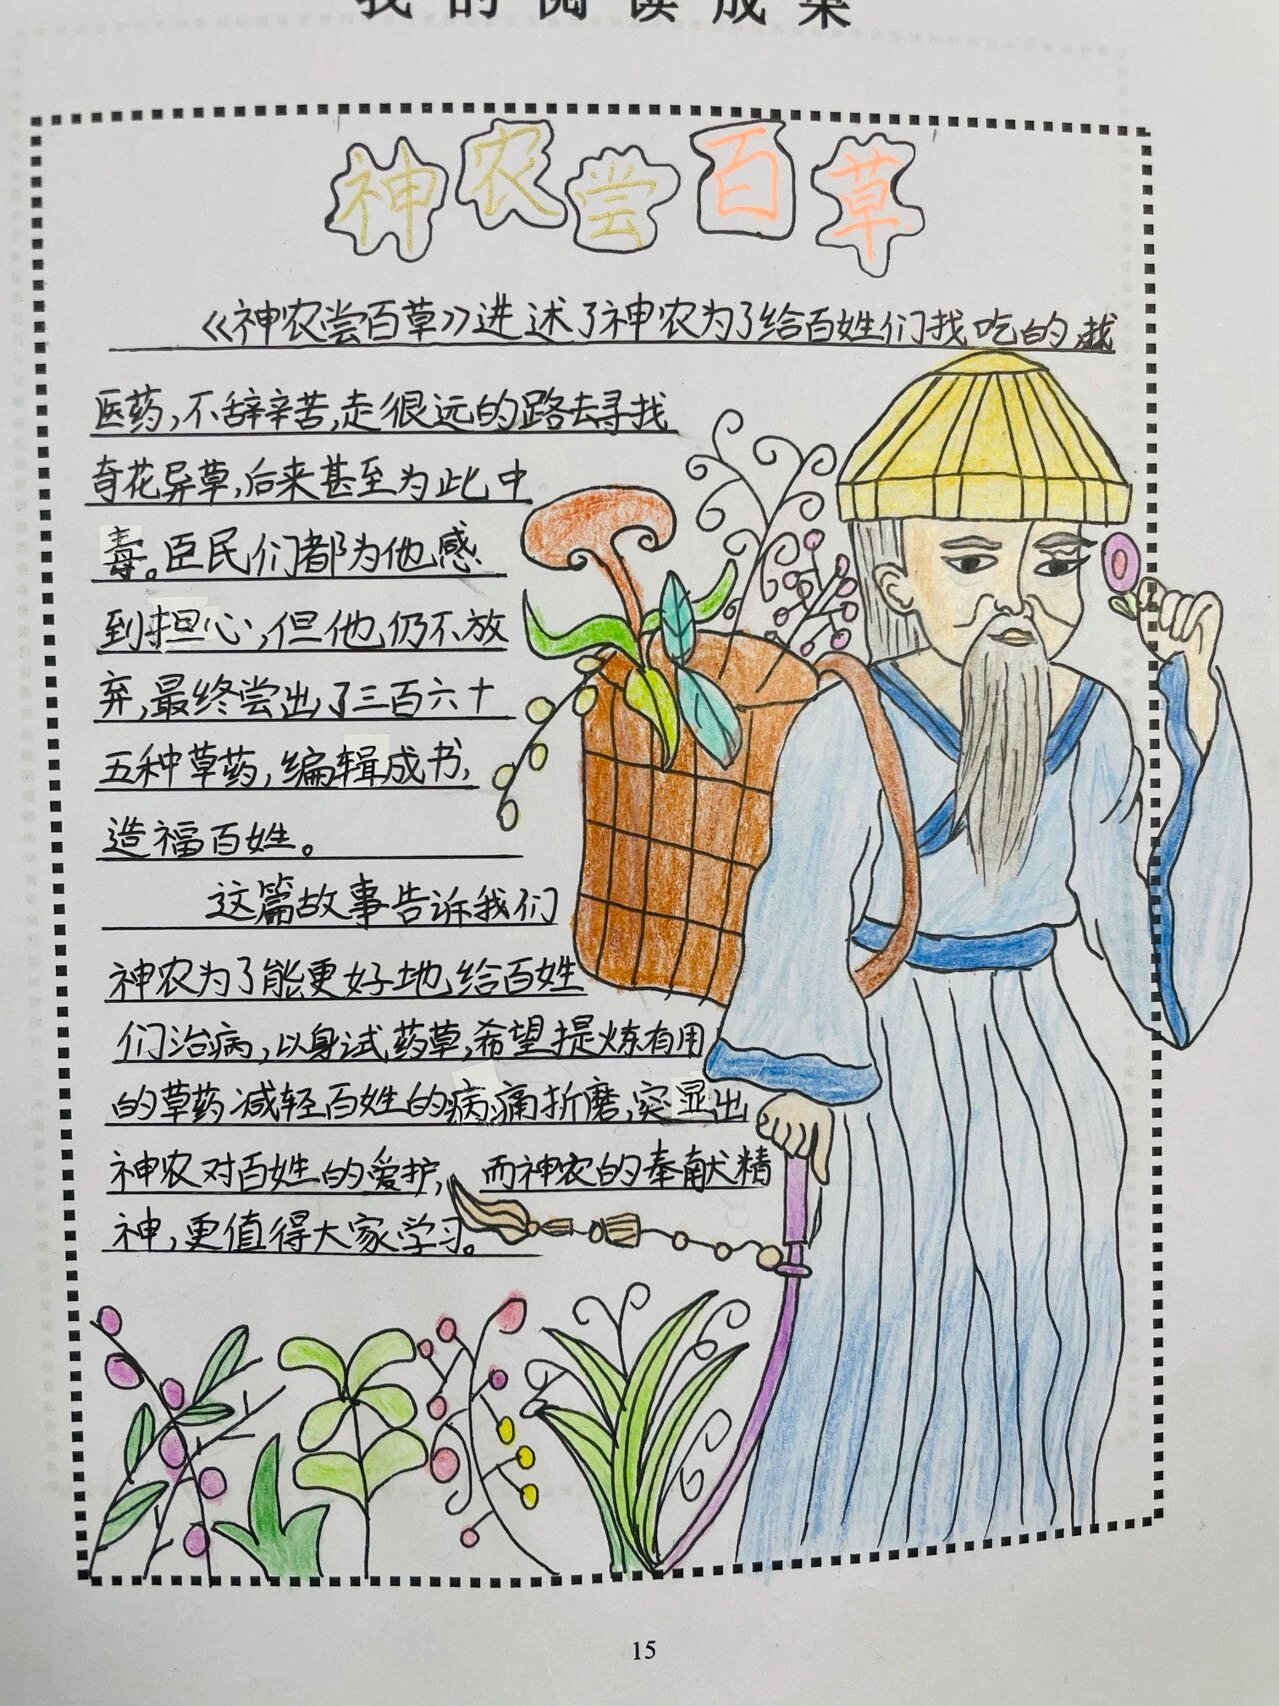 我的阅读成果
神农尝百草
《神农尝百草》进述了神农为了给百姓们找吃的,找
医药,不辞辛苦,走很远的路去寻找
奇花异草,后来甚至为此中
毒。臣民们都为他感
到担心,但他仍不放
弃,最终尝出了三百六十
五种草药,编辑成书,
造福百姓。
这篇故事告诉我们
神农为了能更好地给百姓
们治病,以身试药草,希望提炼有用
的草药减轻百姓的病痛折磨,突显出
神农对百姓的爱护,而神农的奉献精
神,更值得大家学习。
15